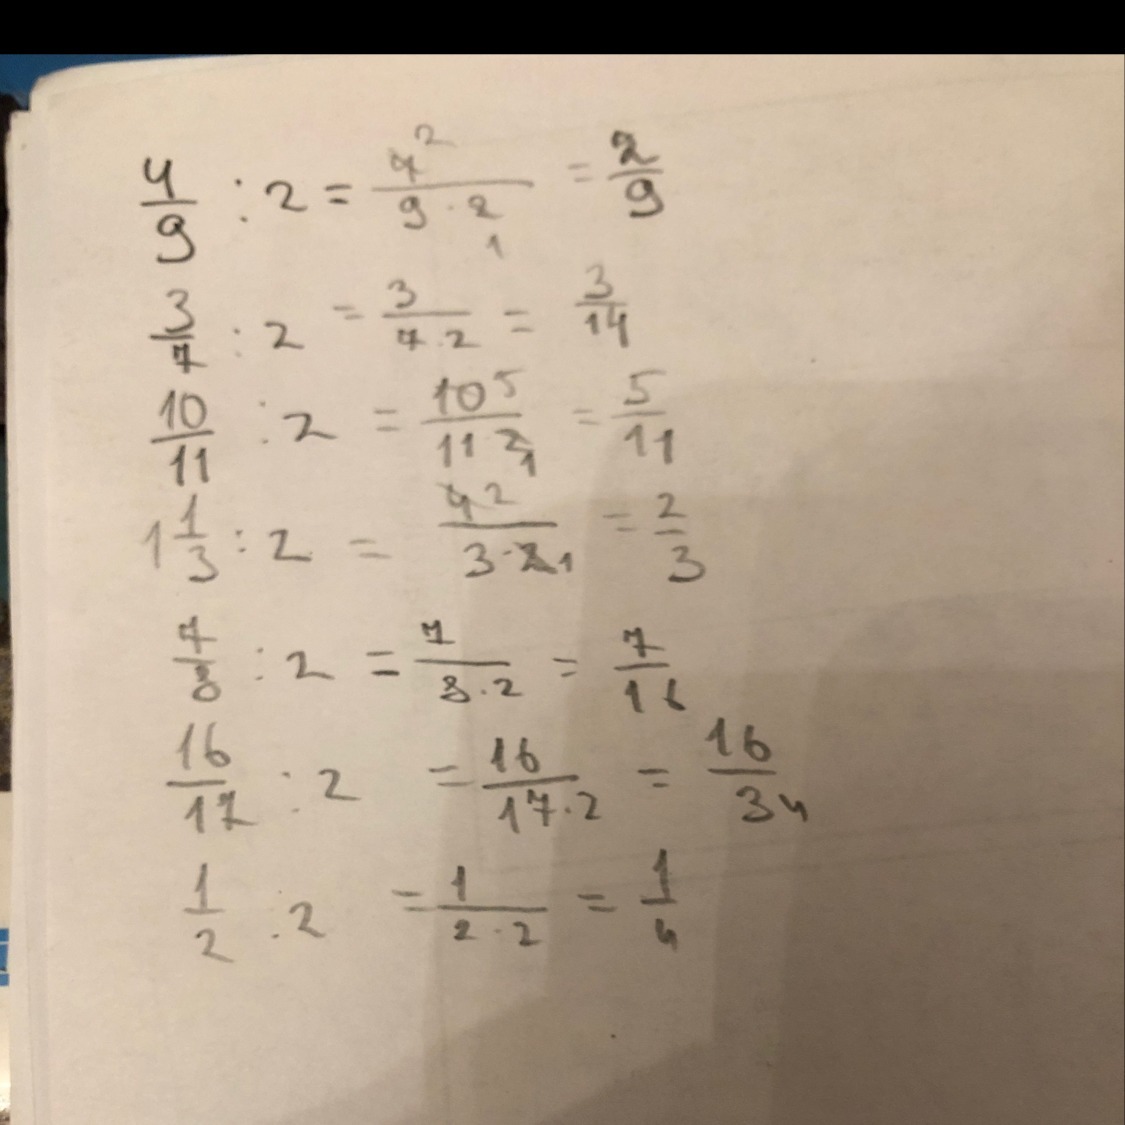 4/9 : 2 = 4²/9·2₁ = 2/9
3/7 : 2 = 3/7·2 = 3/14
10/11 : 2 = 10⁵/11·2₁ = 5/11
1 1/3 : 2 = 4²/3·2₁ = 2/3
7/8 : 2 = 7/8·2 = 7/16
16/17 : 2 = 16/17·2 = 16/34
1/2 : 2 = 1/2·2 = 1/4